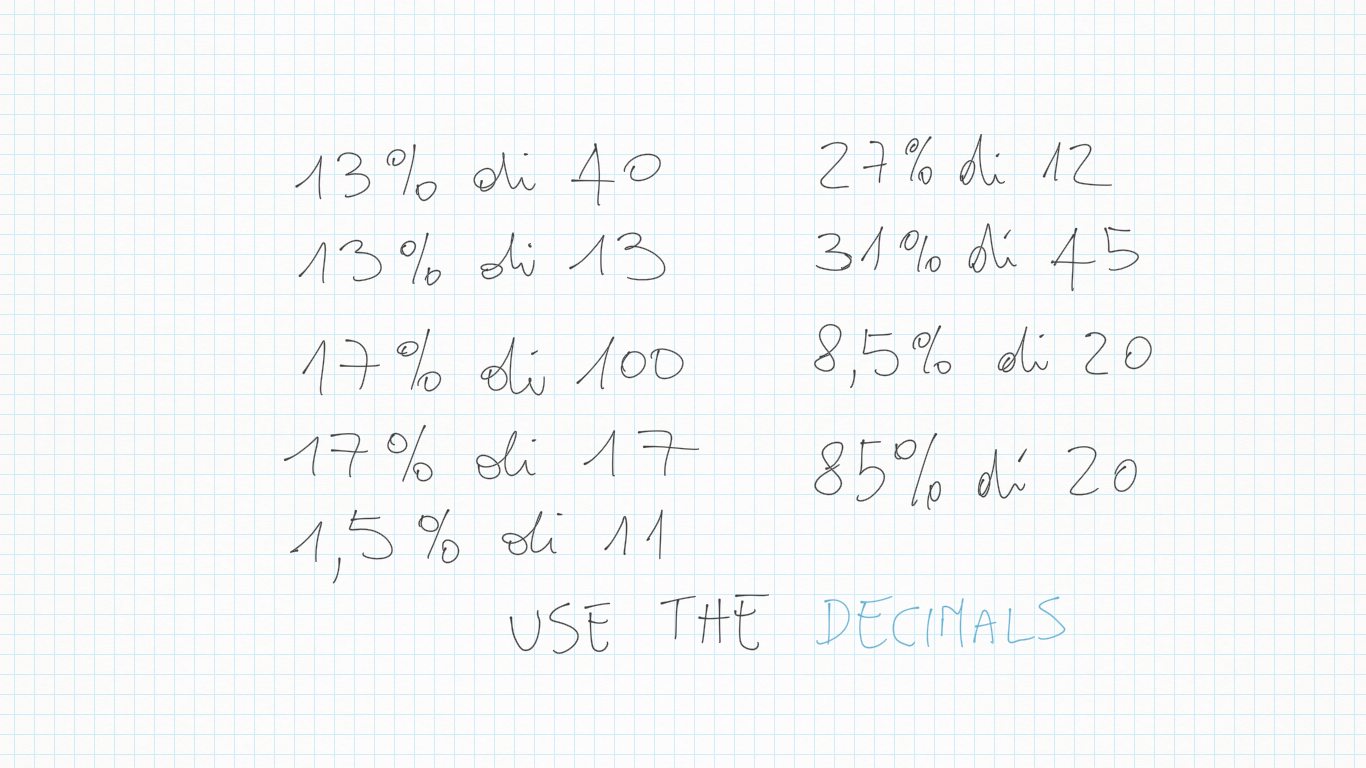 13% di 40
13% di 13
17% di 100
17% di 17
1,5% di 11
27% di 12
31% di 45
8,5% di 20
85% di 20
USE THE DECIMALS